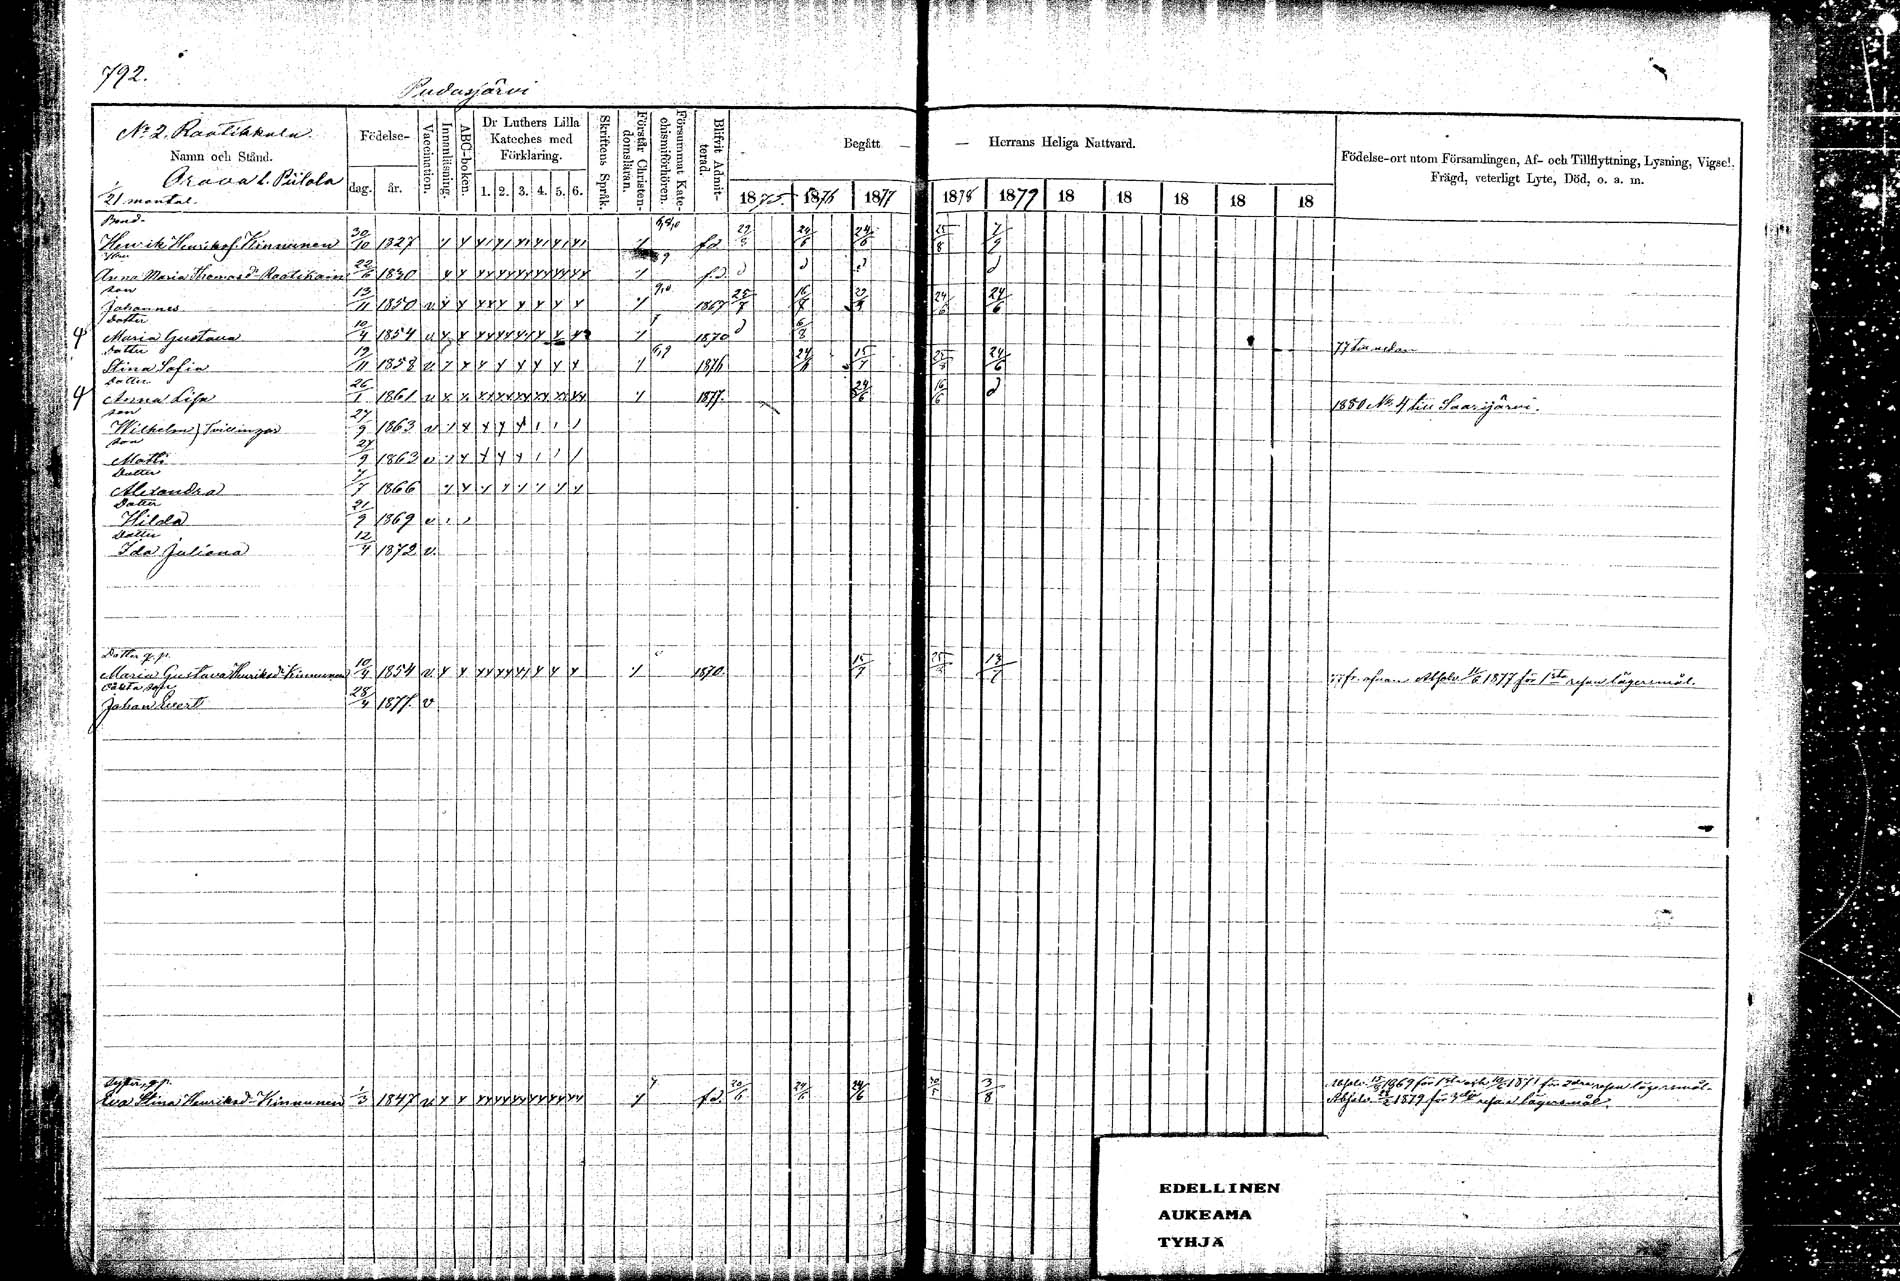 792.
Pudasjärvi
No 2. Raatikkala
Namn och Stånd.
Orava l. Piilola
1/21 mantal.
Födelse-
dag. år.
Vaccination.
Innanläsning.
ABC-boken.
Dr Luthers Lilla
Kateches med
Förklaring.
1. 2. 3. 4. 5. 6.
Skriftens Språk.
Förstår Christendomsläran.
Försummat Katechismiförhören.
Blifvit Admitterad.
Begått — — Herrans Heliga Nattvard.
1875 1876 1877 1878 1879 18 18 18 18 18
Födelse-ort utom Församlingen, Af- och Tillflyttning, Lysning, Vigsel,
Frägd, veterligt Lyte, Död, o. a. m.
Bond.
Henrik Henriksf. Kinnunen 30/10 1827 fd. 24/6 7/9
Anna Maria Thomasdr Raatikain 22/6 1830 fd.
son
Johannes 13/11 1850 v 1867 24/6
Dotter
Maria Gustava 10/4 1854 v 1870 77 här nedan
Dotter
Stina Sofia 19/11 1858 v. 1876 15/7 24/6
Dotter
Anna Lisa 26/1 1861 v 1877. 24/6 16/6 1880 No. 4 till Saarijärvi.
son
Wilhelm } Tvillingar 27/9 1863 v
son
Matti 27/9 1863 v
Dotter
Alexandra 7/7 1866
Dotter
Hilda 21/9 1869 v
Dotter
Ida Juliana 12/4 1872 v.
Dotter q. p.
Maria Gustava Henriksdr Kinnunen 10/4 1854 v. 1870. 15/7 77 fr. ofvan Absolv. 1877 för 1sta resan lägersmål.
oäkta son
Johan Evert 28/4 1877. v
Syster, q. p.
Eva Stina Henriksdr Kinnunen 1/3 1847 v. fd. 20/6 24/6 24/6 3/8 Absolv. 1869 för 1sta och 1871 för 2dra resan lägersmål.
Absolv. 1879 för 3dje resan lägersmål.
EDELLINEN
AUKEAMA
TYHJÄ